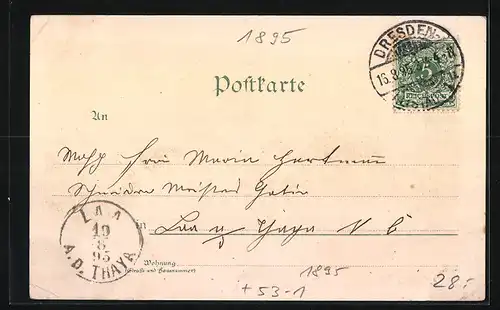 1895
DRESDEN-
16.8.95 4-5N
Postkarte
An
Frau Maria Hartmann
Gattin
in Laa a/ Thaya N Ö
LAA
19
8
95
A.D. THAYA
Wohnung
(Straße und Hausnummer)
1895
+53-1
28.-